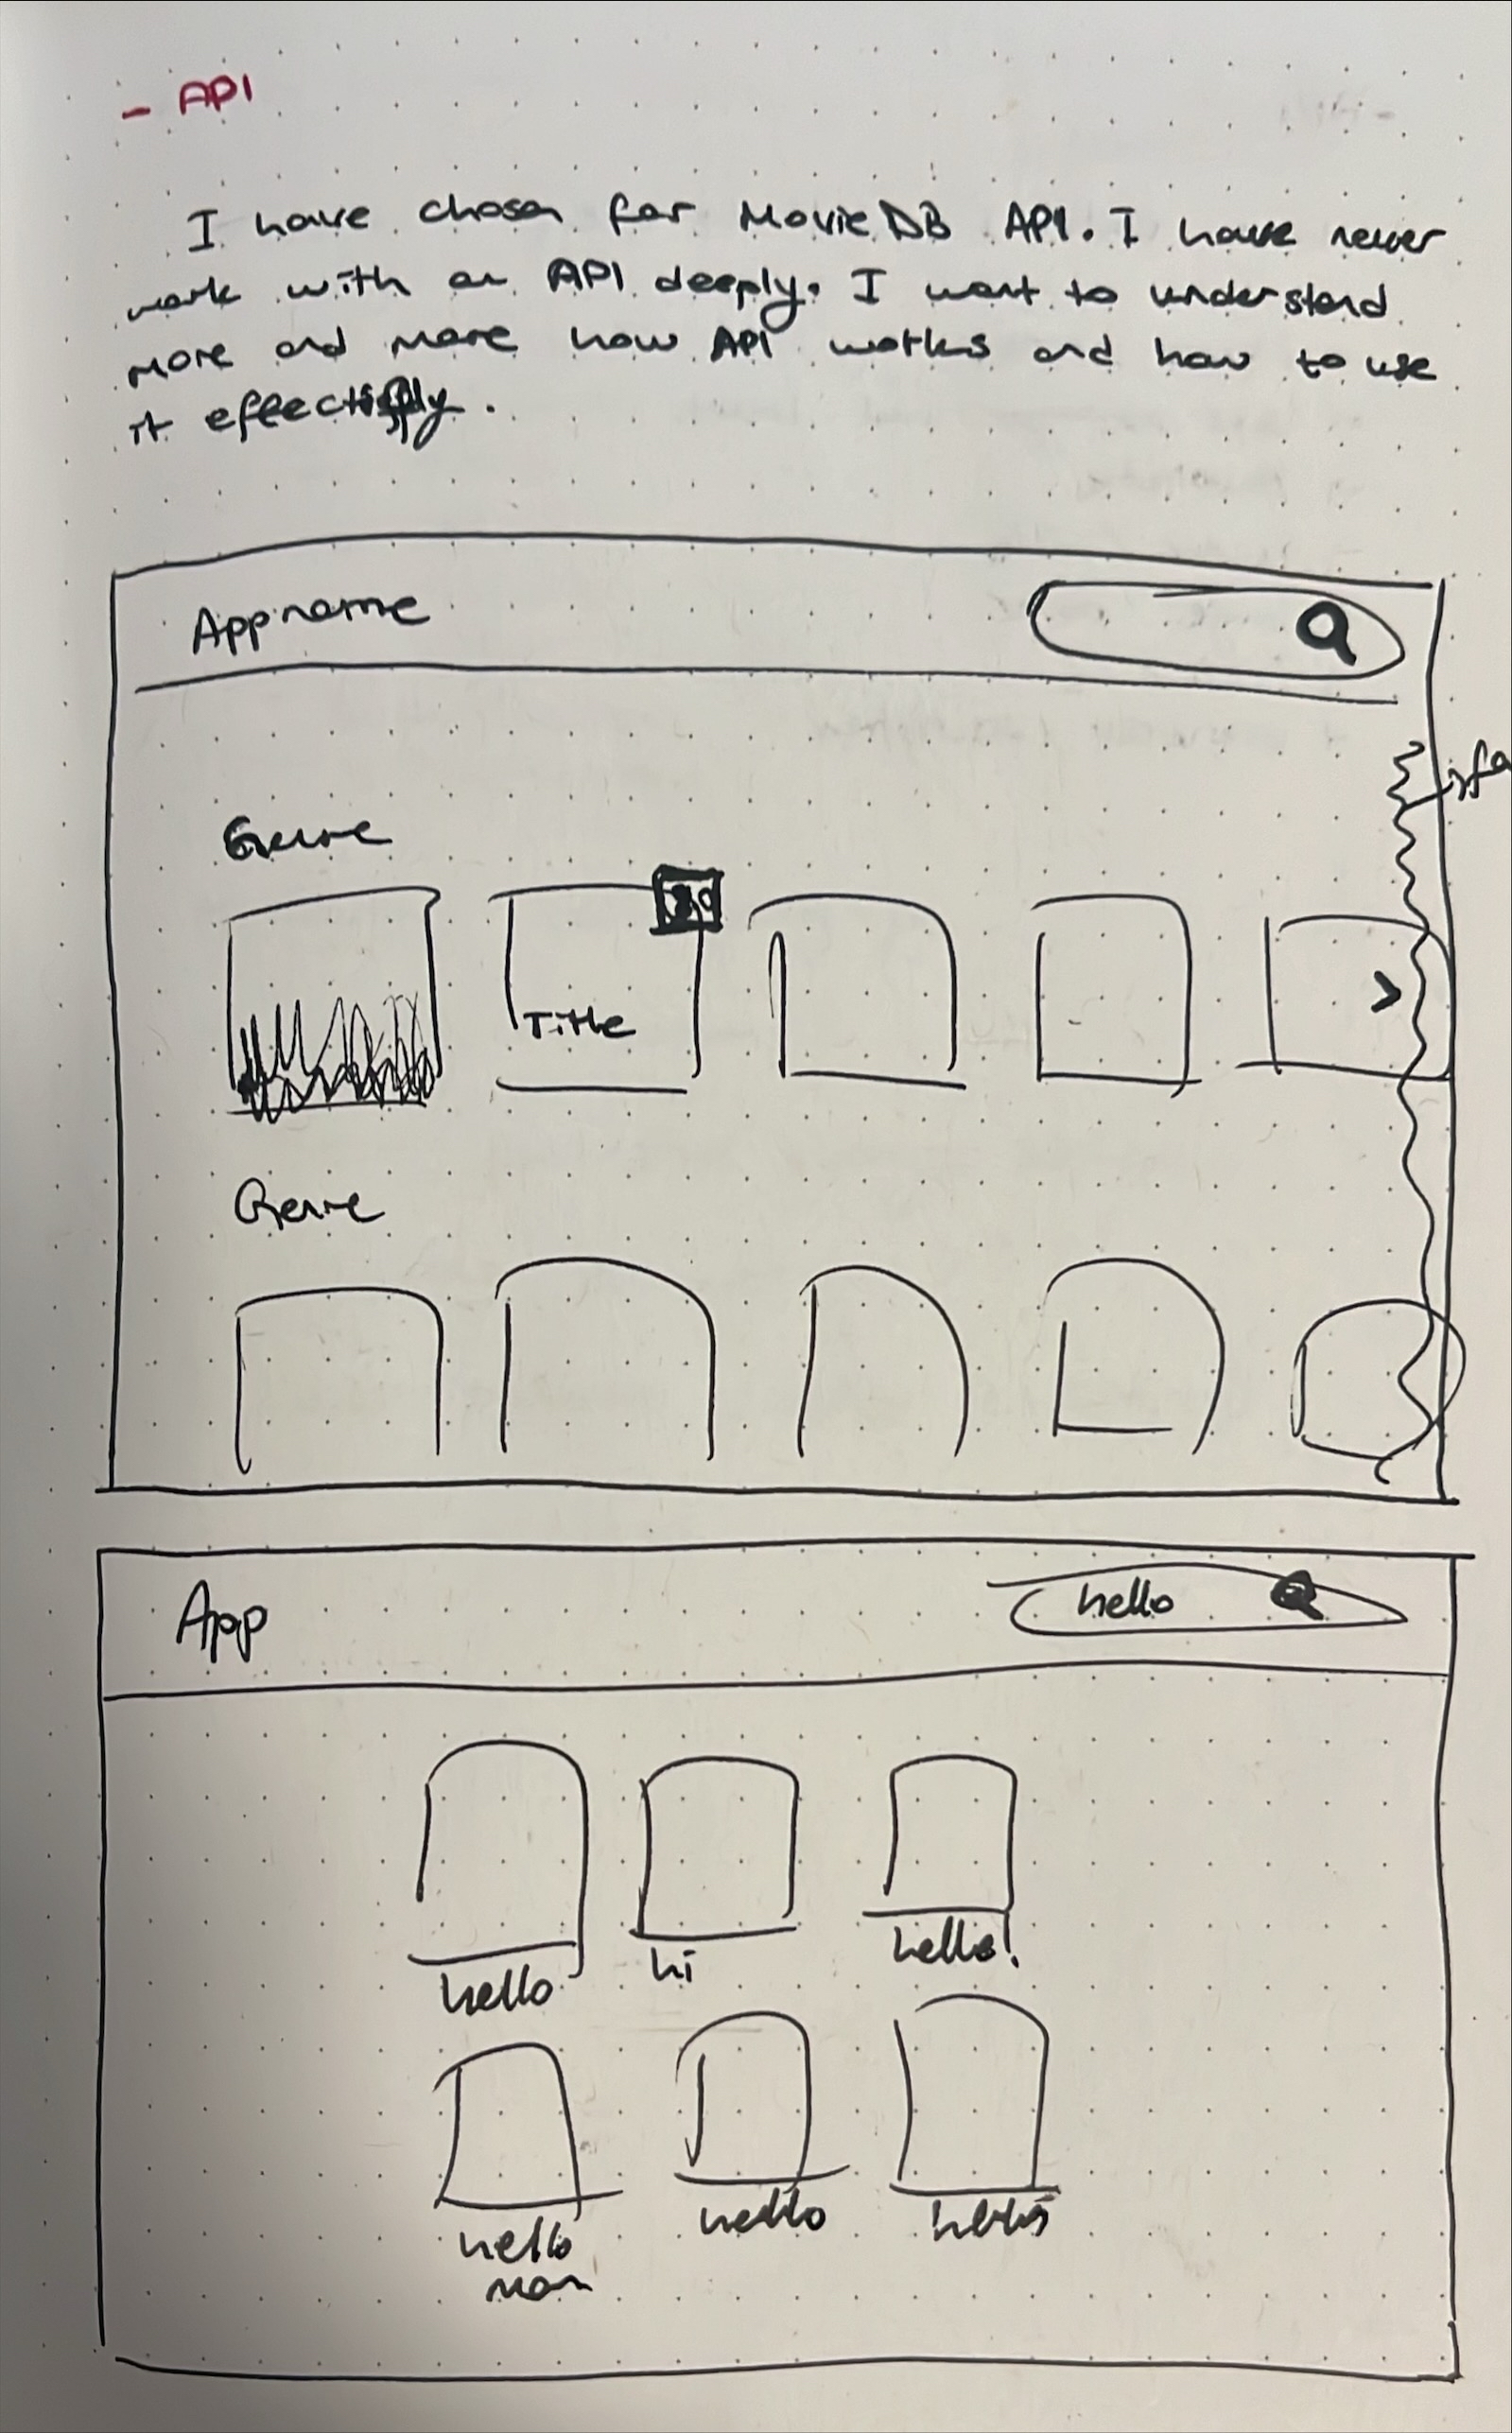 - API
I have chosen for MovieDB API. I have never
work with an API deeply. I want to understand
more and more how API works and how to use
it effectively.
App name
Genre
Title
>
Genre
App
hello
hello
hi
hello!
hello
man
hello